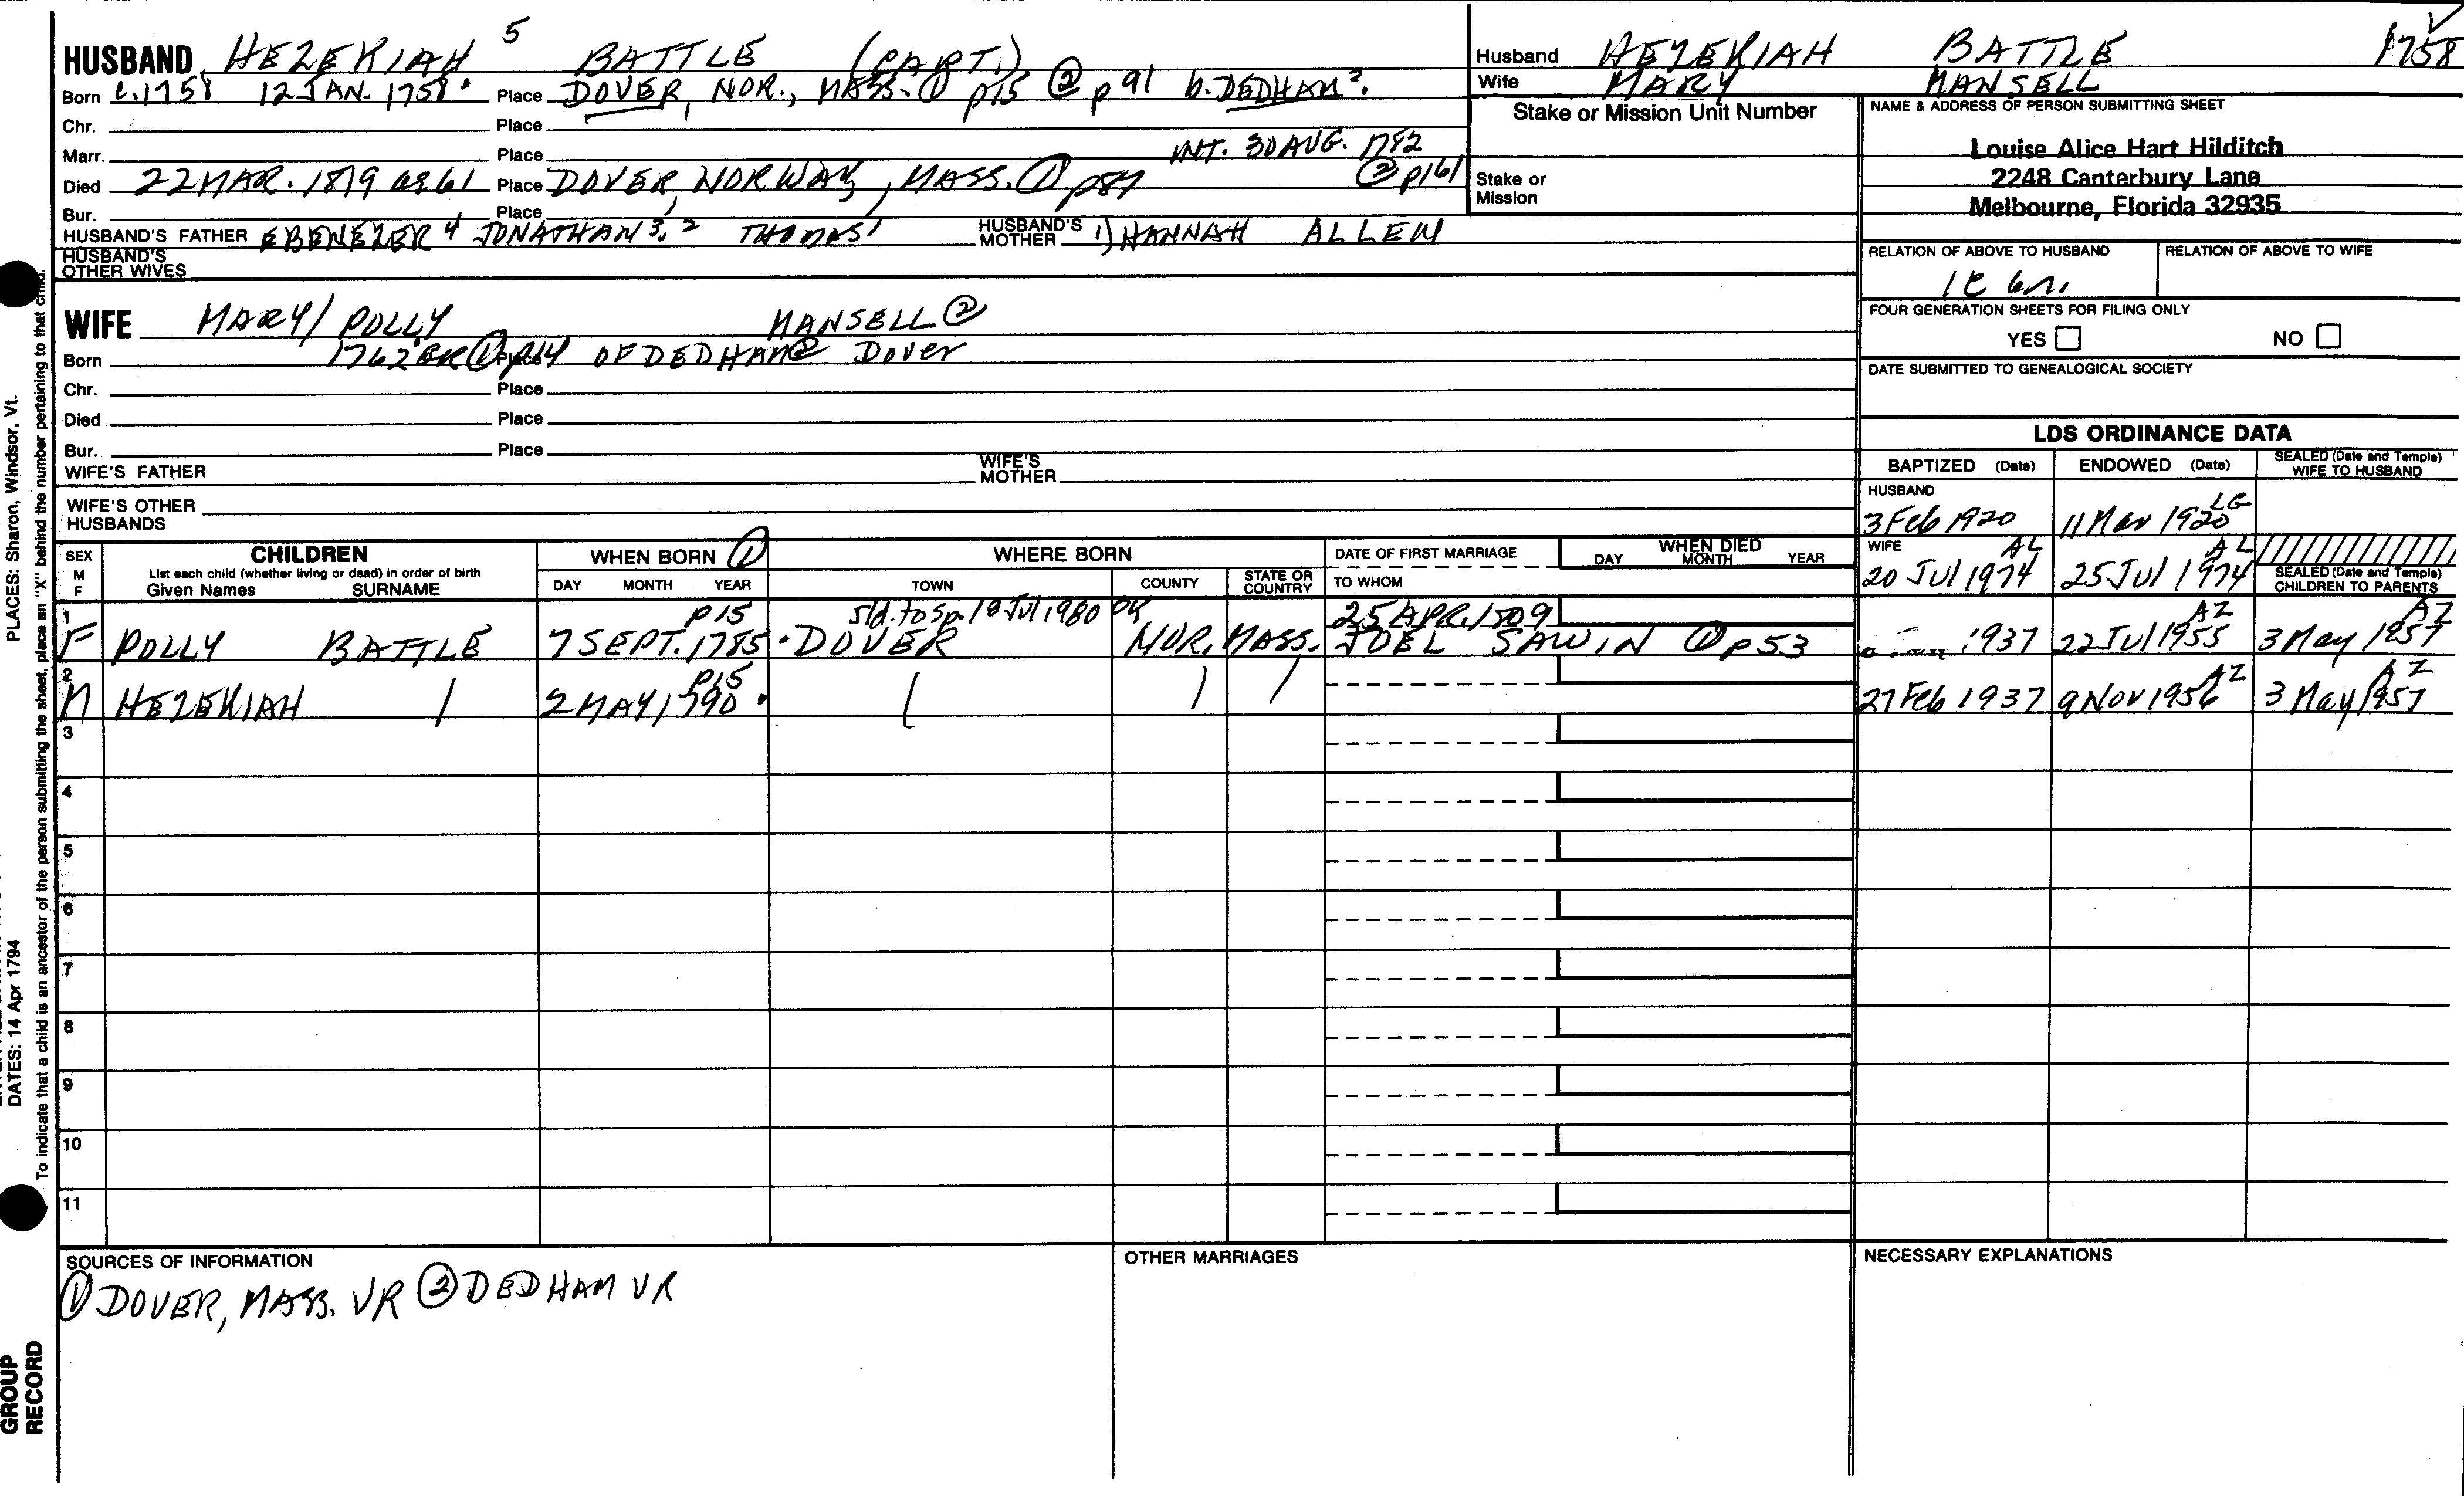 HUSBAND HEZEKIAH 5 BATTLE (CAPT.)
Born c.1758 12 JAN. 1758. Place DOVER, NOR., MASS. ① p15 ② p 91 b. DEDHAM?.
Chr. Place
INT. 30 AUG. 1782
Marr. Place
Died 22 MAR. 1819 ae 61 Place DOVER, NORWAY, MASS. ① p87 ② p161
Bur. Place
HUSBAND'S FATHER EBENEZER 4 JONATHAN 3, 2 THOMAS 1 HUSBAND'S MOTHER 1) HANNAH ALLEN
HUSBAND'S OTHER WIVES
WIFE MARY/ POLLY MANSELL ②
Born 1762 ① p14 Place OF DEDHAM ② Dover
Chr. Place
Died Place
Bur. Place
WIFE'S FATHER WIFE'S MOTHER
WIFE'S OTHER HUSBANDS
Husband HEZEKIAH BATTLE 1758
Wife MARY MANSELL
Stake or Mission Unit Number
Stake or Mission
NAME & ADDRESS OF PERSON SUBMITTING SHEET
Louise Alice Hart Hilditch
2248 Canterbury Lane
Melbourne, Florida 32935
RELATION OF ABOVE TO HUSBAND RELATION OF ABOVE TO WIFE
FOUR GENERATION SHEETS FOR FILING ONLY
YES NO
DATE SUBMITTED TO GENEALOGICAL SOCIETY
LDS ORDINANCE DATA
BAPTIZED (Date) ENDOWED (Date) SEALED (Date and Temple) WIFE TO HUSBAND
HUSBAND
3 Feb 1920 11 Mar 1920 LG
WIFE
20 Jul 1974 AL 25 Jul 1974 AL
SEALED (Date and Temple) CHILDREN TO PARENTS
SEX M F
CHILDREN
List each child (whether living or dead) in order of birth
Given Names SURNAME
WHEN BORN ①
DAY MONTH YEAR
WHERE BORN
TOWN COUNTY STATE OR COUNTRY
DATE OF FIRST MARRIAGE
TO WHOM
WHEN DIED
DAY MONTH YEAR
1 p15 sld. to sp. 18 Jul 1980 25 APR. 1809 AZ AZ
F POLLY BATTLE 7 SEPT. 1785. DOVER NOR. MASS. JOEL SAWIN ① p53 1937 22 Jul 1955 3 May 1957
2 p15 AZ AZ
M HEZEKIAH 2 MAY 1790. 27 Feb 1937 9 Nov 1956 3 May 1957
3
4
5
6
7
8
9
10
11
SOURCES OF INFORMATION
① DOVER, MASS. VR ② DEDHAM VR
OTHER MARRIAGES
NECESSARY EXPLANATIONS
PLACES: Sharon, Windsor, Vt.
DATES: 14 Apr 1794
To indicate that a child is an ancestor of the person submitting the sheet, place an "X" behind the number pertaining to that child.
GROUP
RECORD